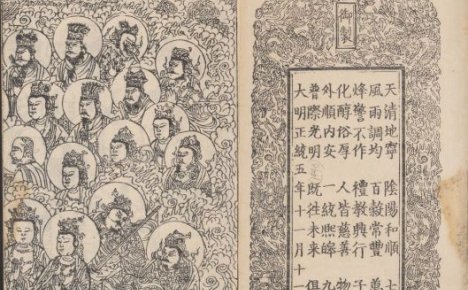 御製
天清地寧 陰陽和順 七
風雨調均 百穀常豐 萬
烽警不作 禮教興行 子
化醇俗厚 人皆慈善 物
外順內安 一統熙皞 九
普際光明 既往未來 俱
大明正統五年十一月十一